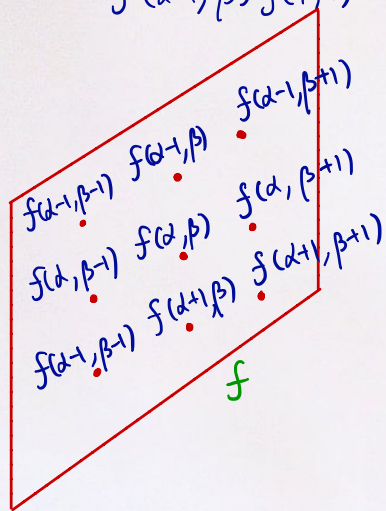 f(α-1, β+1)
f(α-1, β)
f(α-1, β-1)
f(α, β+1)
f(α, β)
f(α, β-1)
f(α+1, β+1)
f(α+1, β)
f(α-1, β-1)
f